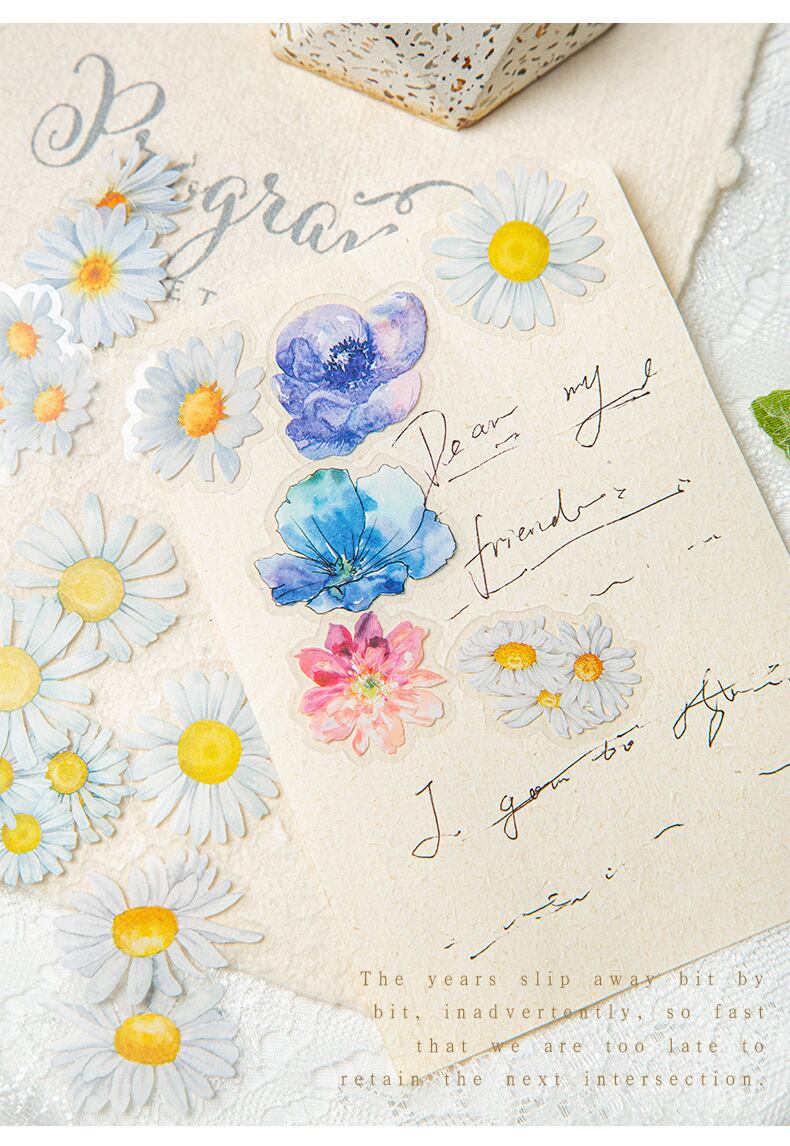 Progra
ET
Dear my
friend
I
The years slip away bit by
bit, inadvertently, so fast
that we are too late to
retain the next intersection.